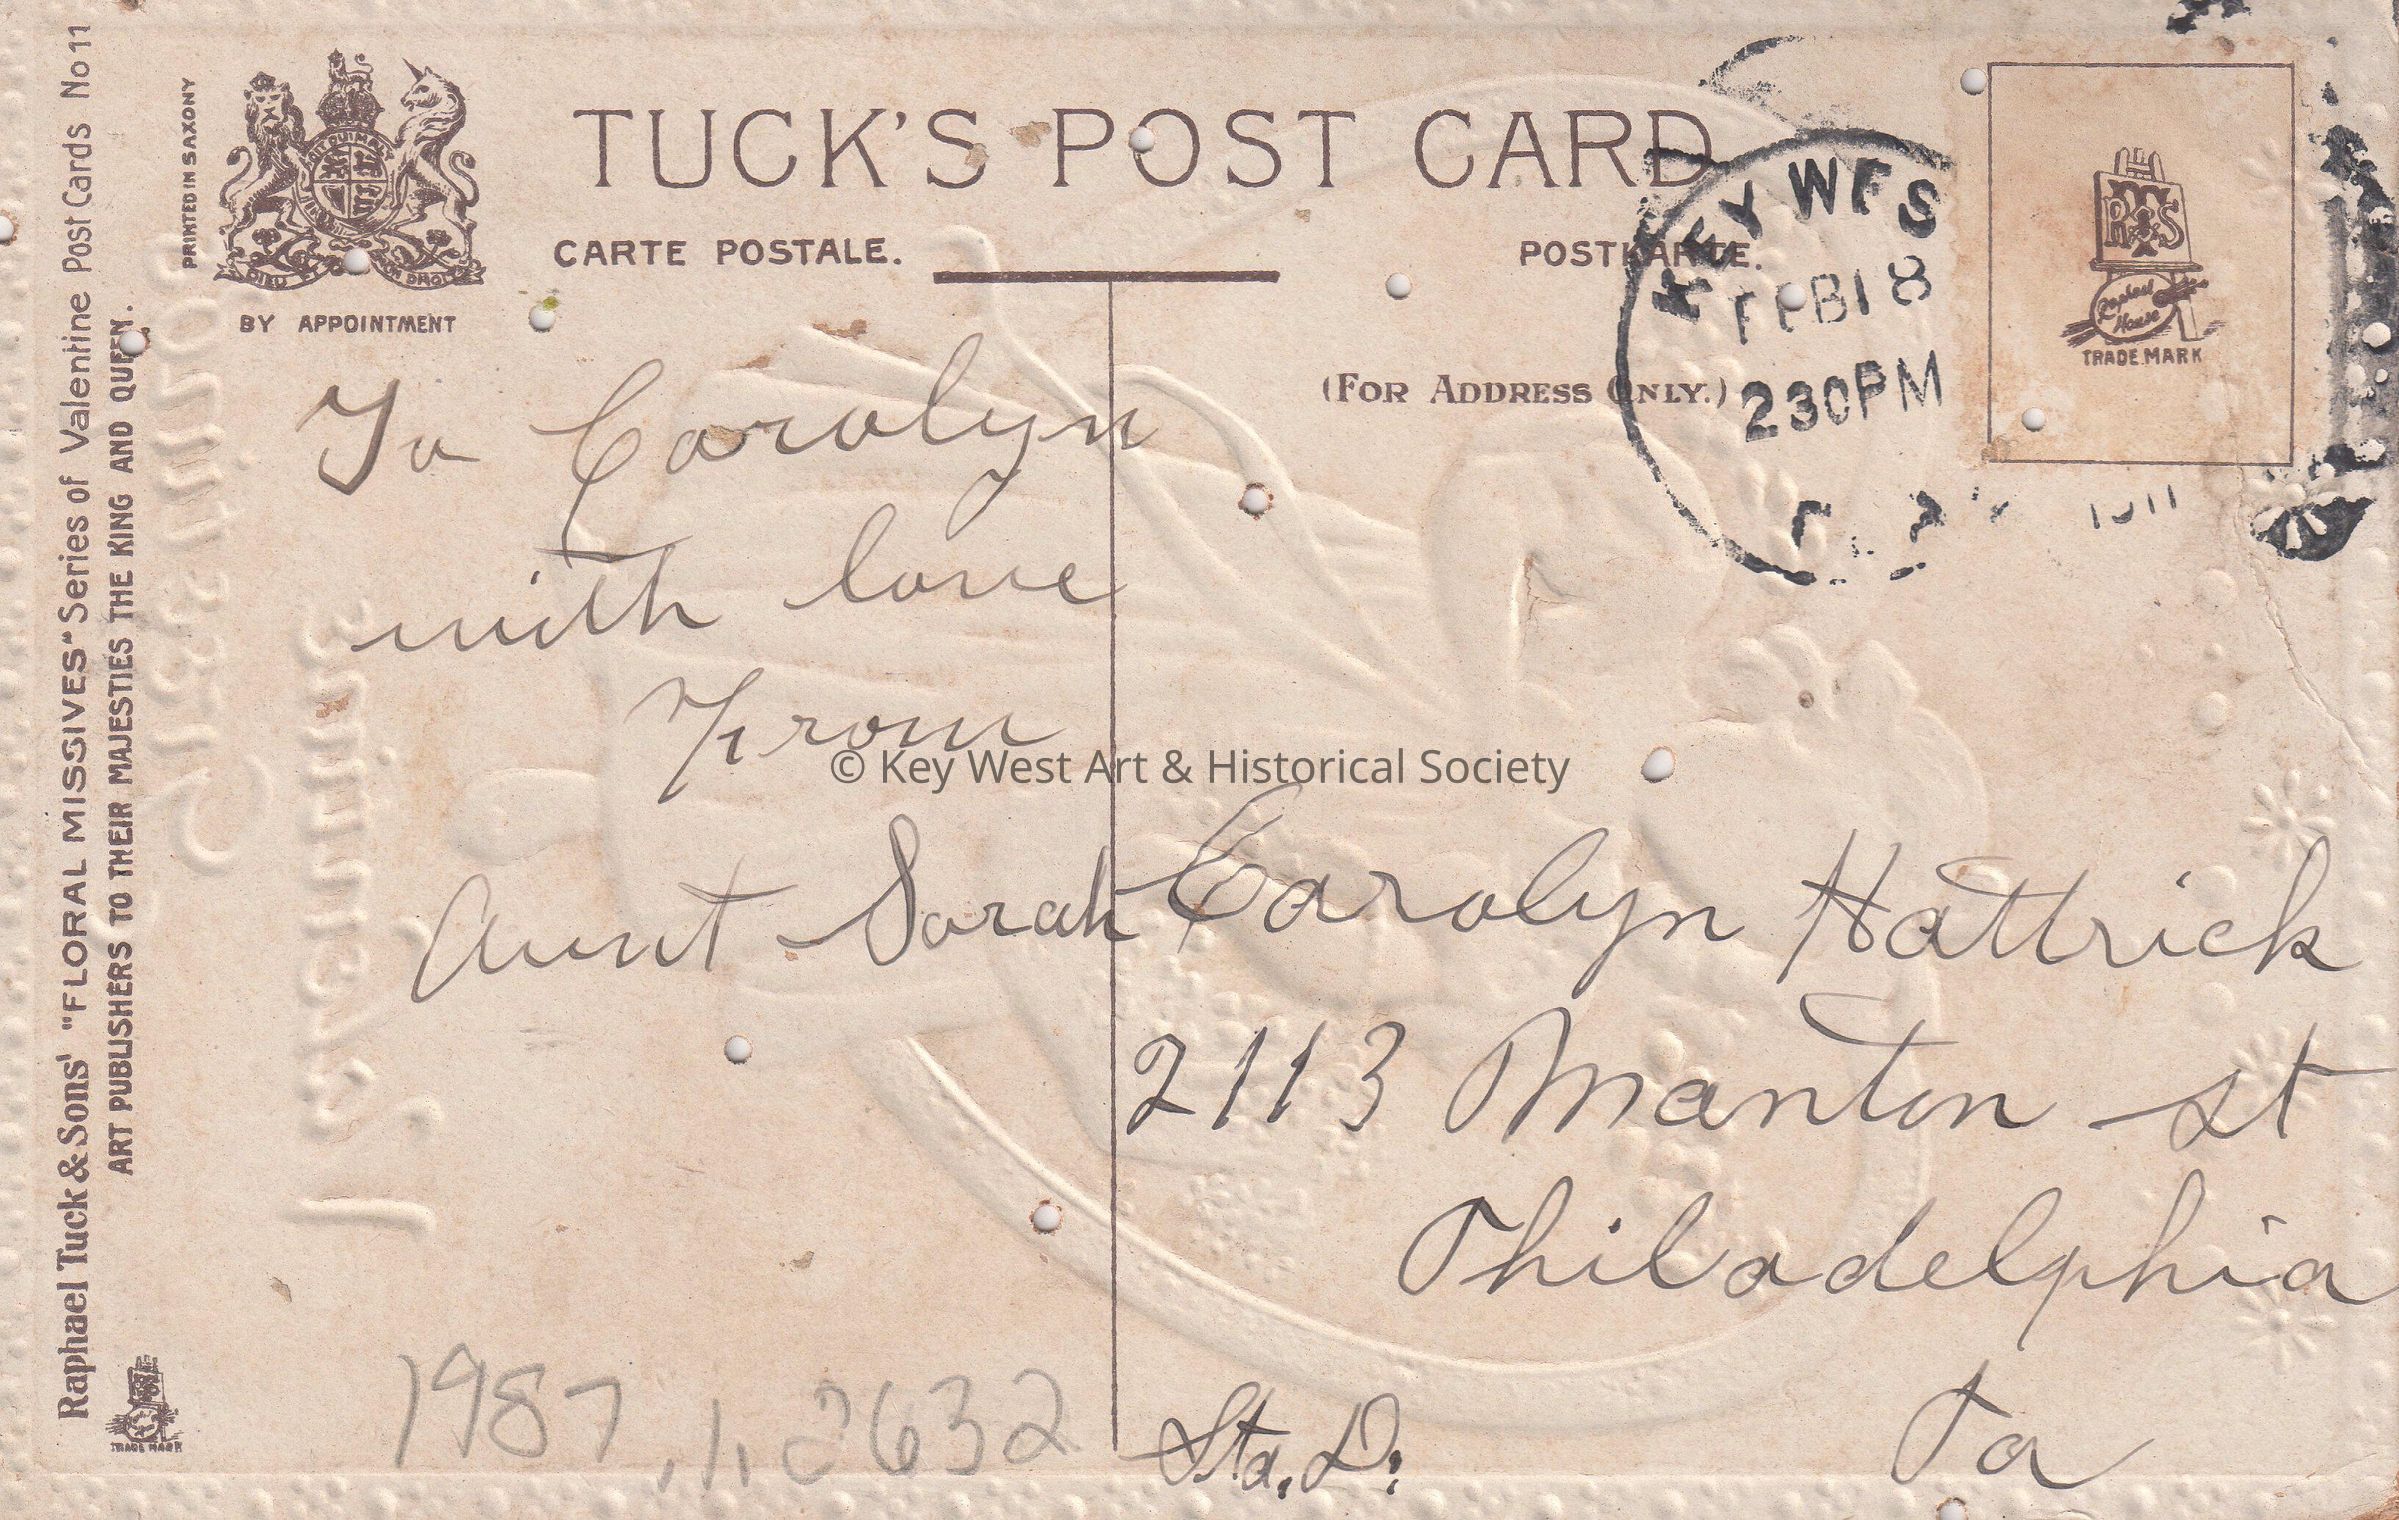 TUCK'S POST CARD
CARTE POSTALE.
POSTKARTE.
(FOR ADDRESS ONLY.)
PRINTED IN SAXONY
BY APPOINTMENT
Raphael Tuck & Sons' "FLORAL MISSIVES" Series of Valentine Post Cards No 11
ART PUBLISHERS TO THEIR MAJESTIES THE KING AND QUEEN.
TRADE MARK
KEY WES
FEB 18
230PM
1911
R T S
Raphael House
TRADE MARK
To Carolyn
with love
From
Aunt Sarah
© Key West Art & Historical Society
Carolyn Hattrick
2113 Manton st
Philadelphia
Pa
Sta. D.
1987.1.2632